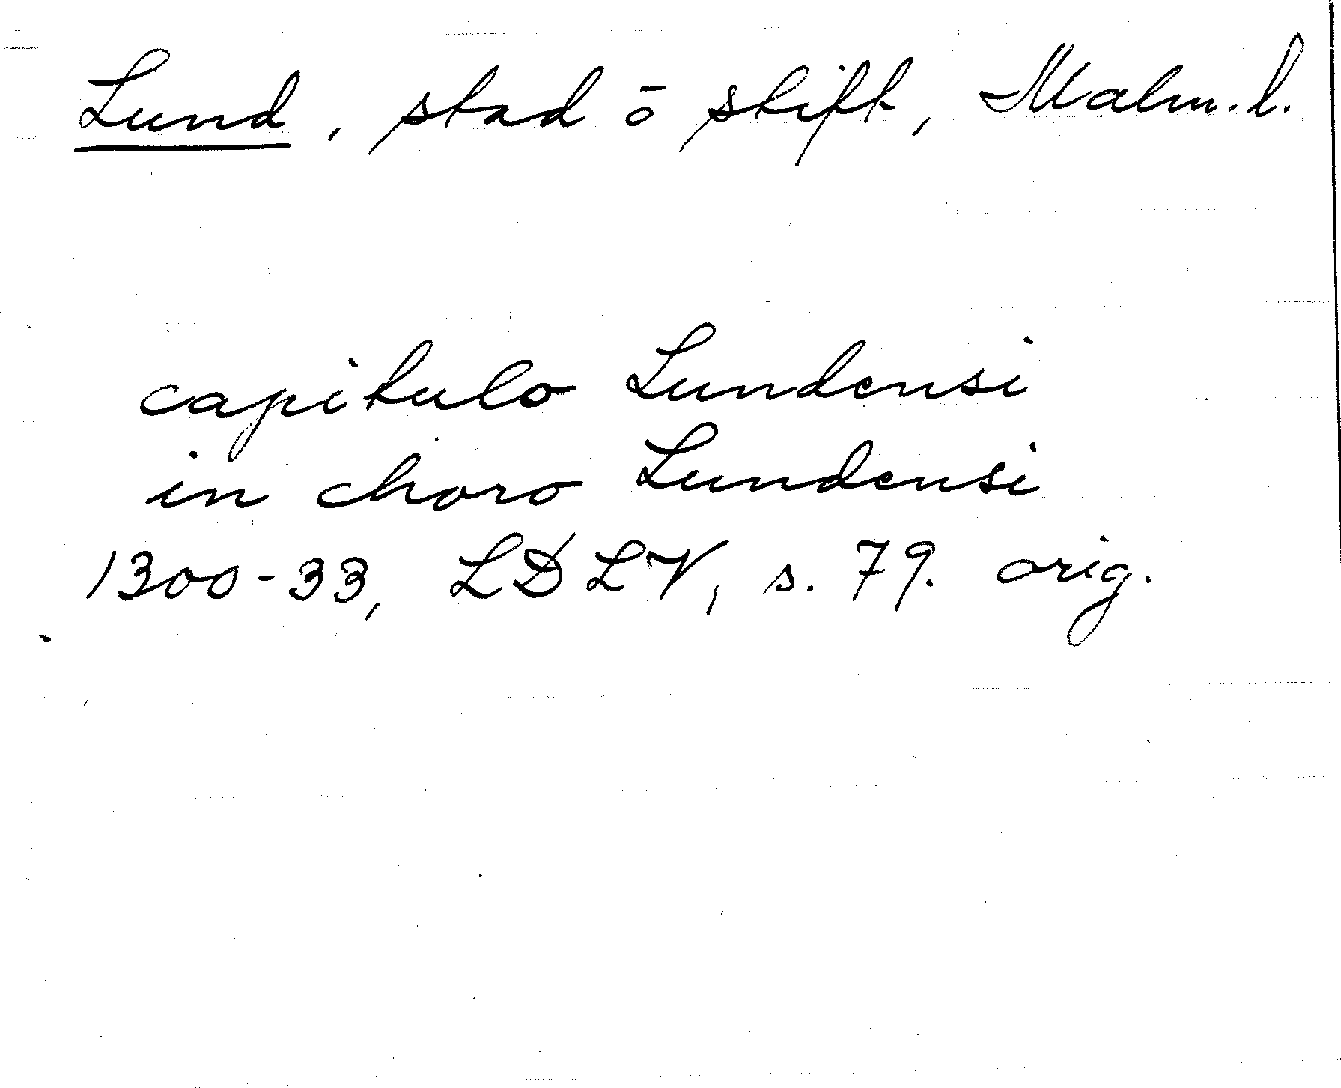 Lund, stad ō stift, Malm. l.
capitulo Lundensi
in choro Lundensi
1300-33, LDLV, s. 79. orig.